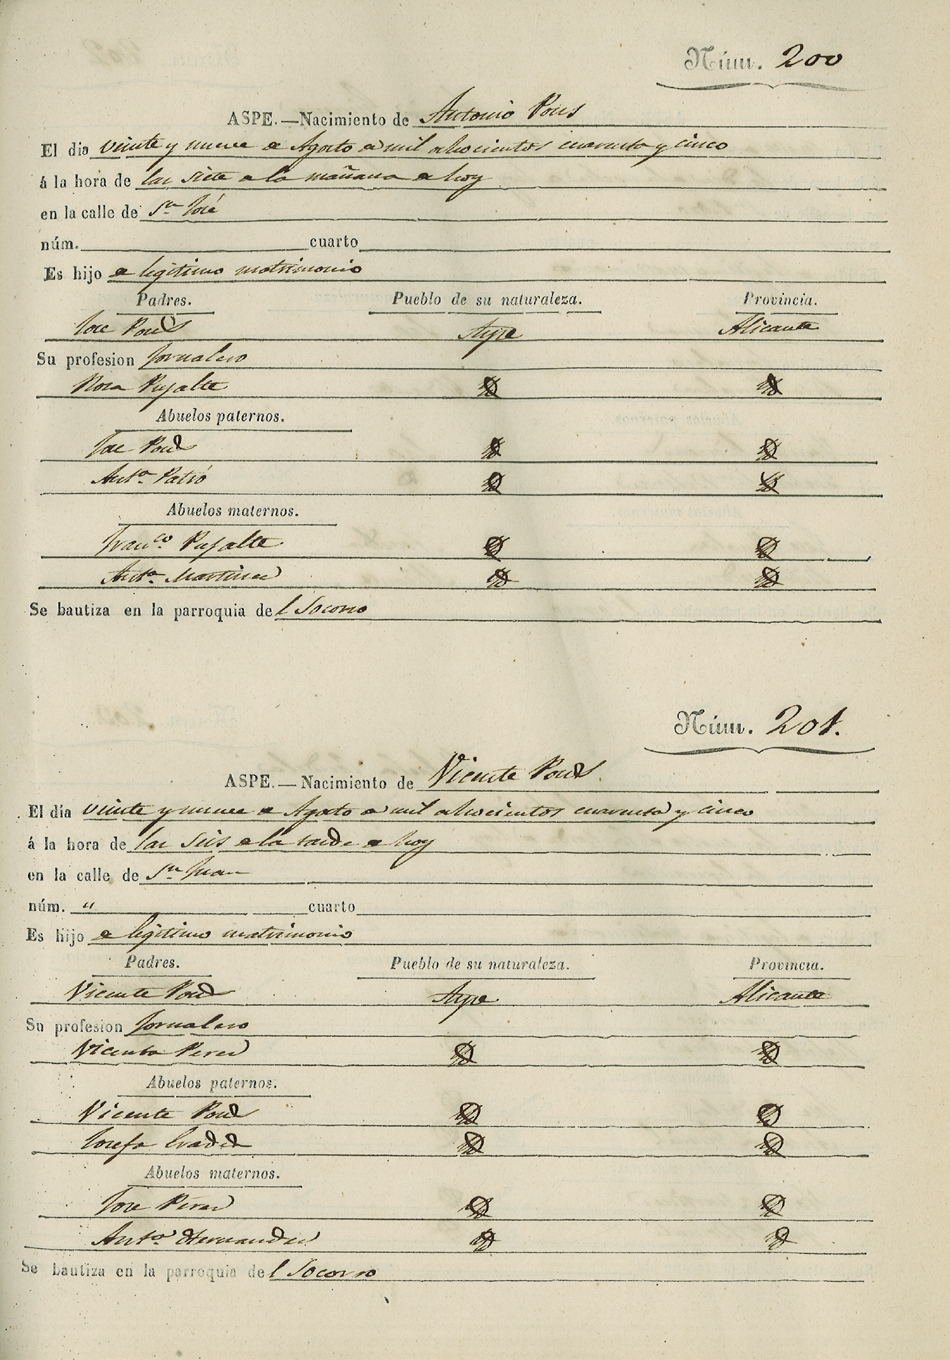 Núm. 200
ASPE.—Nacimiento de Antonio Pons
El día veinte y nueve de Agosto de mil ochocientos cuarenta y cinco
á la hora de las siete de la mañana de hoy
en la calle de Sn José
núm. cuarto
Es hijo de legitimo matrimonio
Padres. Pueblo de su naturaleza. Provincia.
Jose Pons Aspe Alicante
Su profesion Jornalero
Rosa Pujalte
Abuelos paternos.
Jose Pons
Anta
Abuelos maternos.
Franco. Pujalte
Anta. Martinez
Se bautiza en la parroquia del Socorro
Núm. 201.
ASPE.—Nacimiento de Vicente Pons
El día veinte y nueve de Agosto de mil ochocientos cuarenta y cinco
á la hora de las seis de la tarde de hoy
en la calle de Sn Juan
núm. " cuarto
Es hijo de legitimo matrimonio
Padres. Pueblo de su naturaleza. Provincia.
Vicente Pons Aspe Alicante
Su profesion Jornalero
Vicenta Perez
Abuelos paternos.
Vicente Pons
Josefa
Abuelos maternos.
Jose Perez
Anta Hernandez
Se bautiza en la parroquia del Socorro